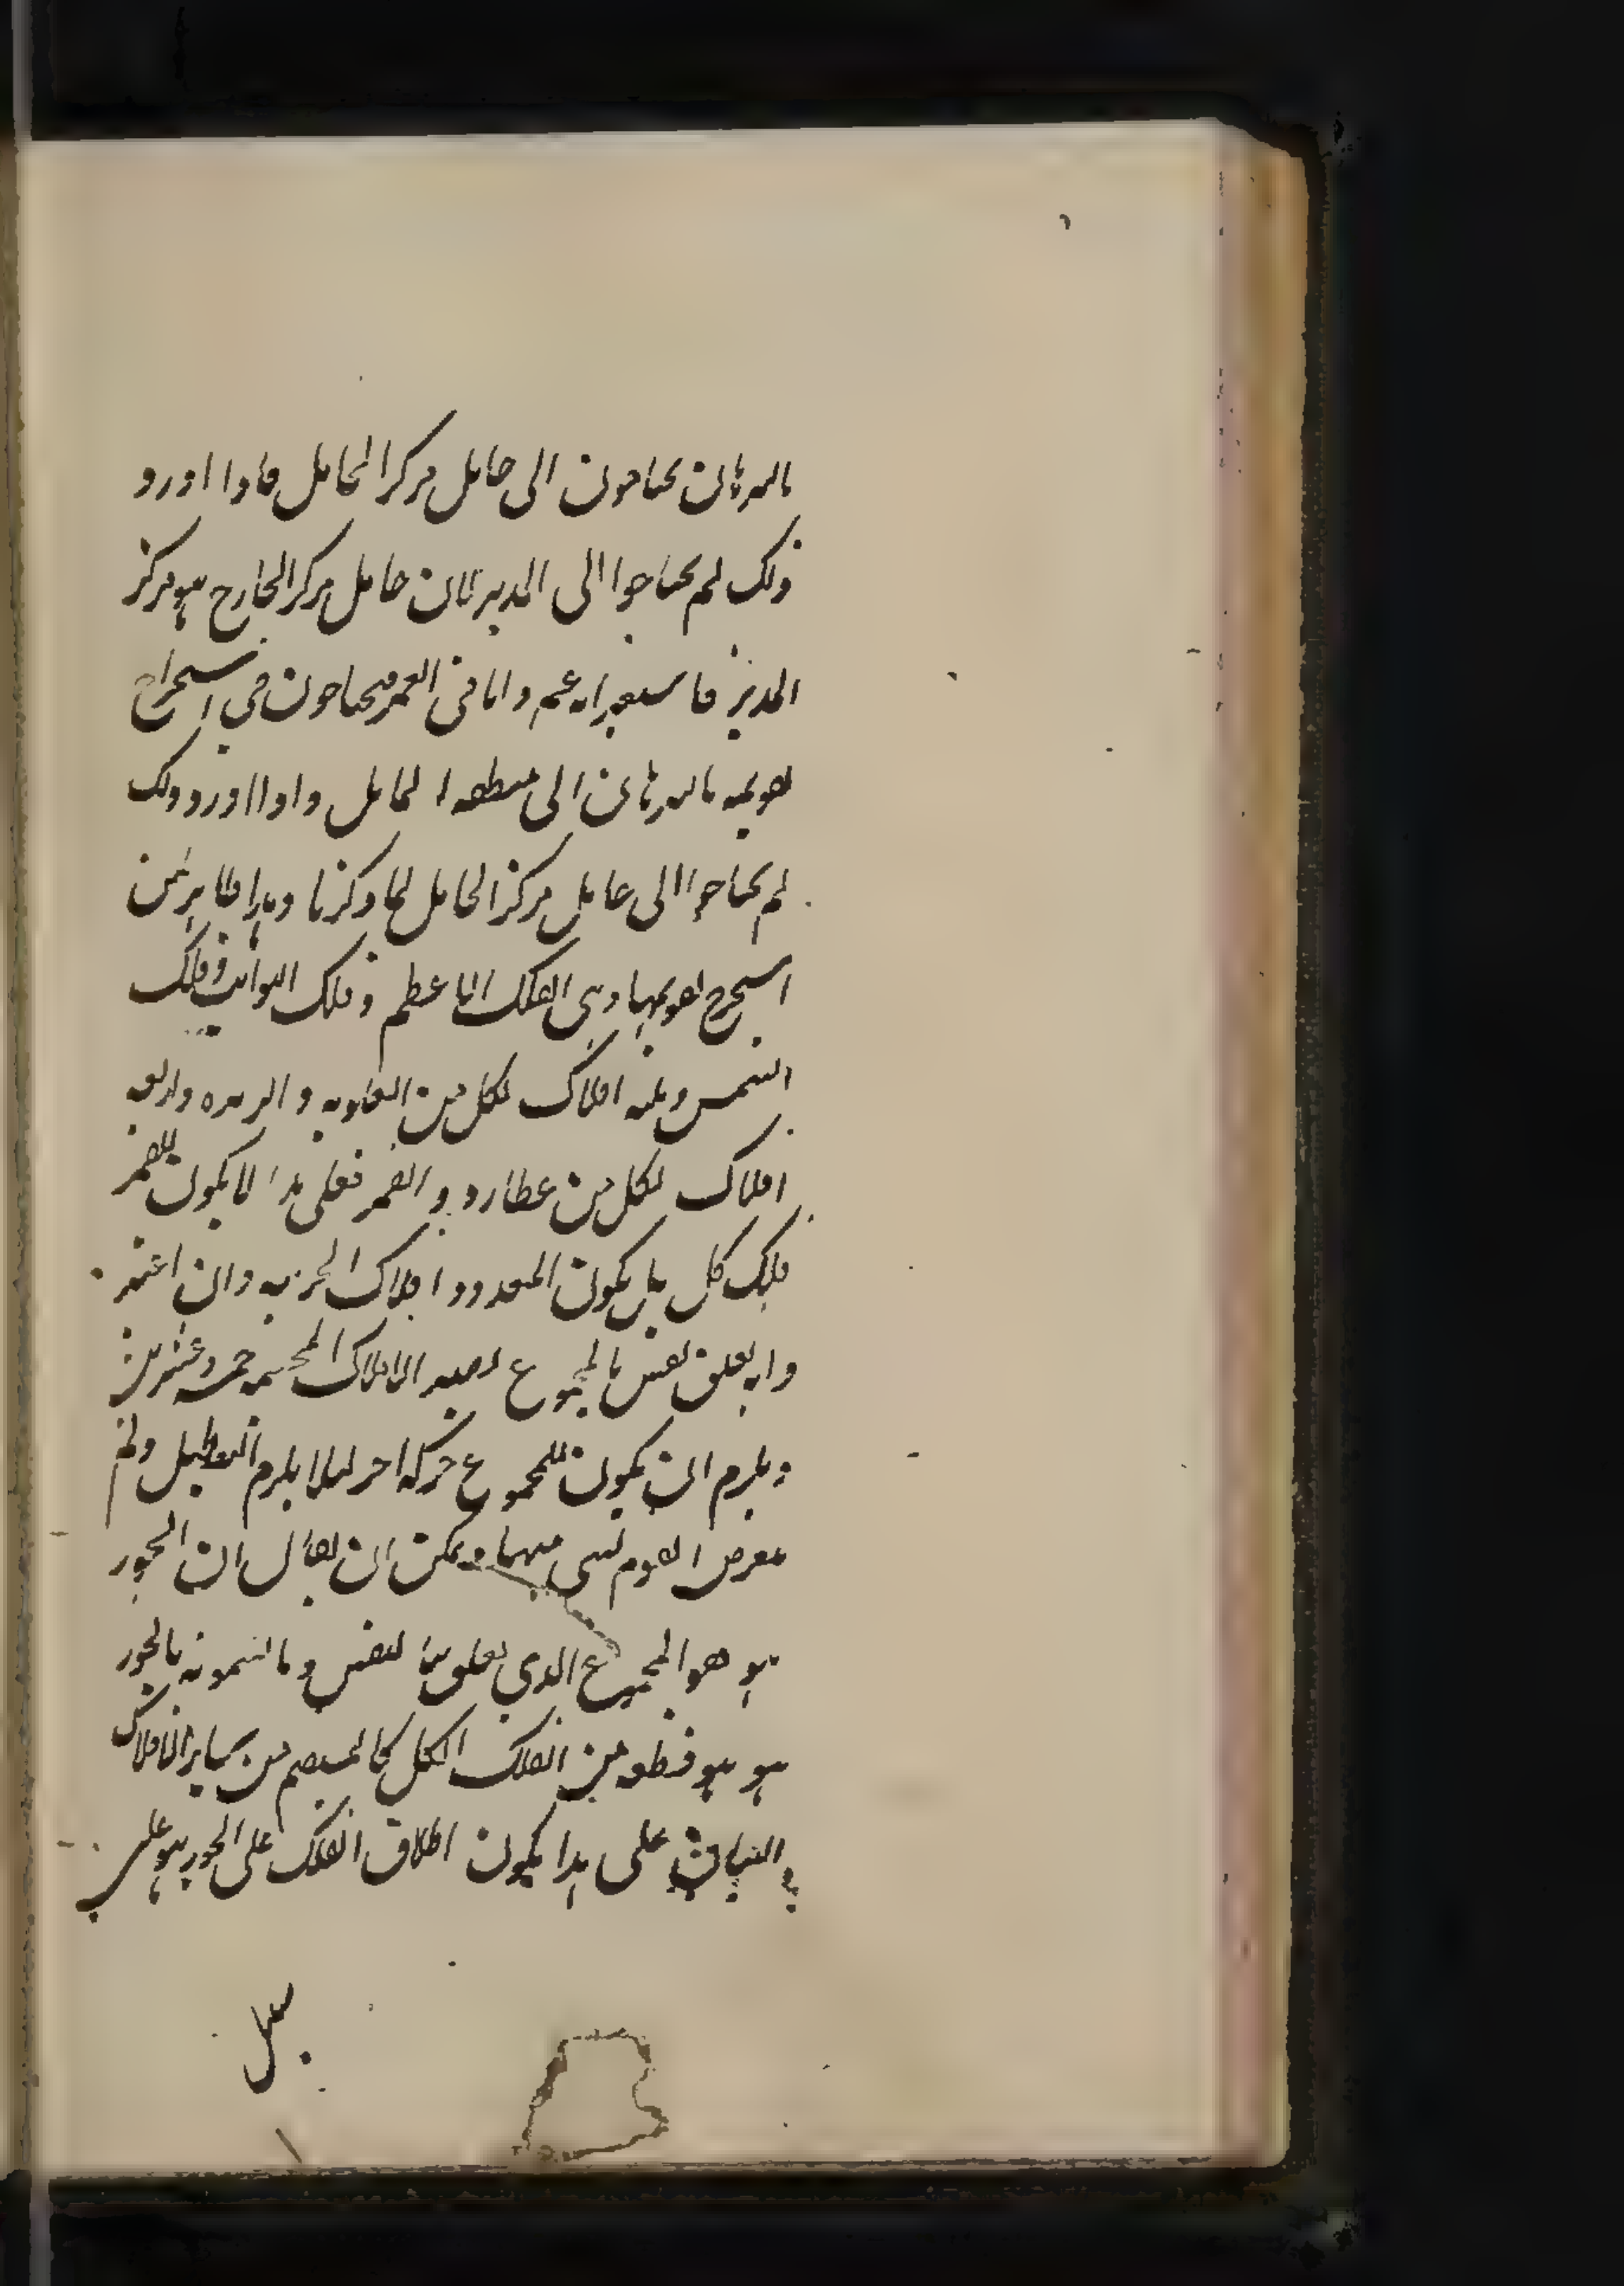 بالبرهان يحتاجون الى حامل مركز الحامل فاذا اورد
ذلك لم يحتاجوا الى المدير لان حامل مركز الخارج هو مركز
المدير فاستعبر انه عم واما في القمر فيحتاجون في استخراج
تقويمه بالبرهان الى منطقه الحامل واذا اورد ذلك
لم يحتاجوا الى حامل مركز الحامل لما ذكرنا وهذا ظاهر لمن
استخرج تقويمها وهى الفلك الاعظم وفلك الثوابت وفلك
الشمس وثلثه افلاك لكل من العلويه والزهره واربعه
افلاك لكل من عطارد والقمر فعلى هذا لا يكون للقمر
فلك كل بل يكون المعدود افلاك الجزئيه وان اعتبر
وانه تعلق نفس بالمجموع تصير الافلاك المجسمه خمسه وعشرين
ويلزم ان يكون للمجموع حركه اخر لئلا يلزم التعطيل ولم
يتعرض القوم لشى منهما ويمكن ان يقال ان الجوزهر
هو المجموع الذي تعلق بها النفس وما تسمونه بالجوزهر
هو قطعه من الفلك الكل كالمتمم من سائر الافلاك
على هذا يكون اطلاق الفلك على الجوزهر على
سبيل